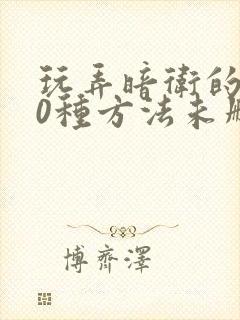 玩弄暗衛的
0種方法未刪
博齊澤